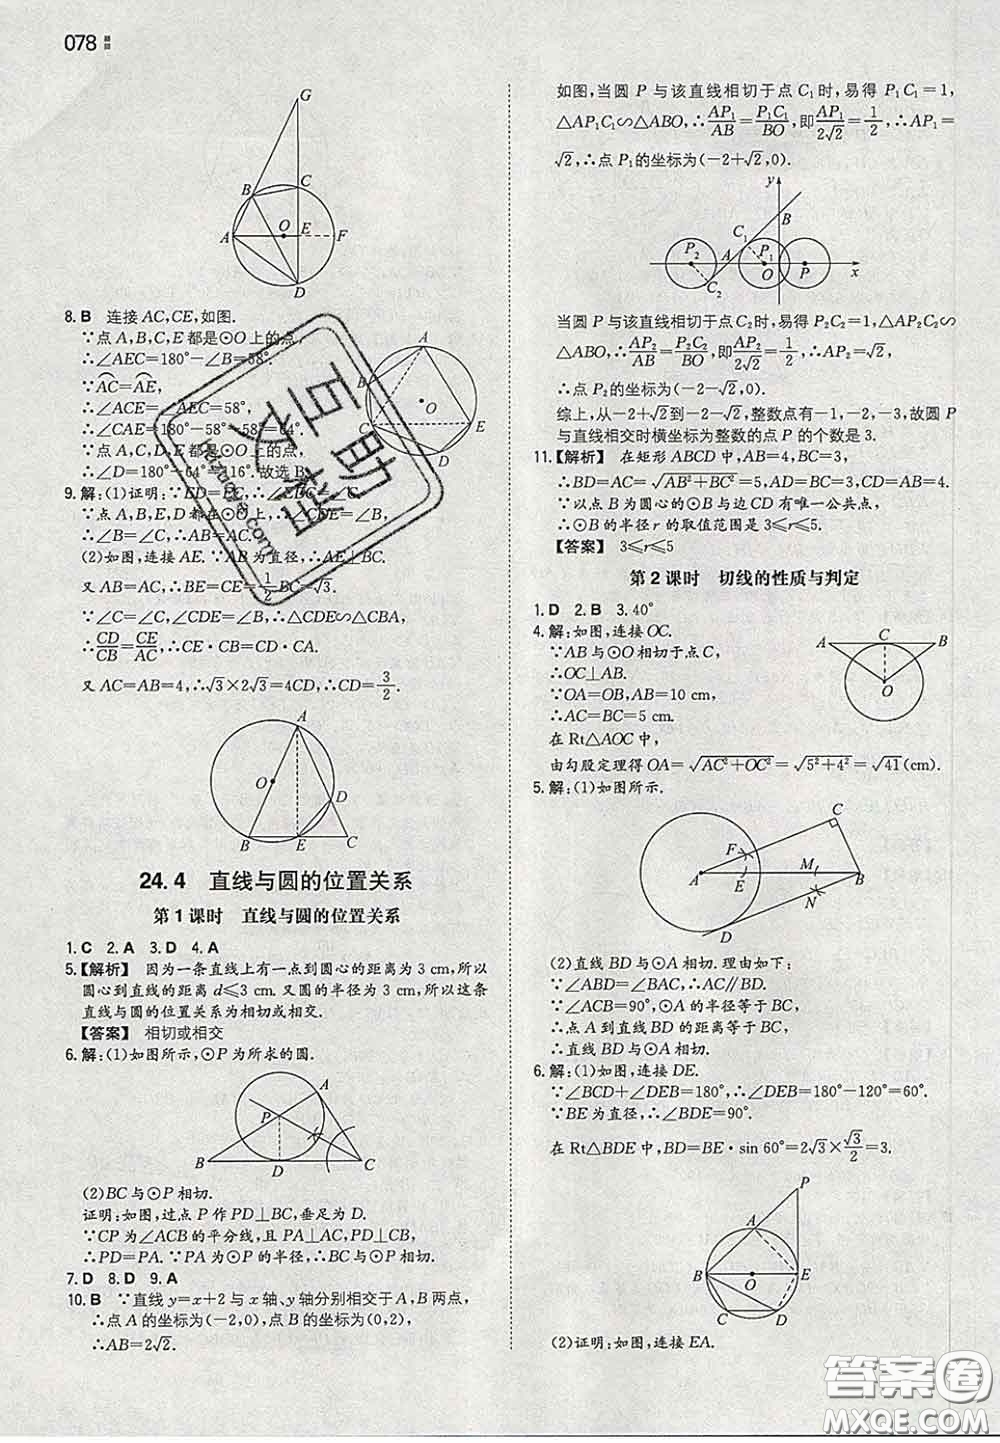 078
G
B
C
O
E
F
A
D
8. B 连接 AC,CE,如图.
∵点 A,B,C,E 都是⊙O 上的点,
∴∠AEC=180°-∠B=58°.
∵AC=AE,
∴∠ACE=∠AEC=58°,
∴∠CAE=180°-58°-58°=64°.
∵点 A,C,D,E 都是⊙O 上的点,
∴∠D=180°-64°=116°.故选 B.
A
B
O
C
E
D
9. 解:(1)证明:∵ED=EC,∴∠EDC=∠C.
∵点 A,B,E,D 都在⊙O 上,∴∠EDC=∠B,
∴∠B=∠C,∴AB=AC.
(2)如图,连接 AE.∵AB 为直径,∴AE⊥BC.
又 AB=AC,∴BE=CE=1/2 BC=√3.
∵∠C=∠C,∠CDE=∠B,∴△CDE∽△CBA,
∴CD/CB=CE/AC,∴CE·CB=CD·CA.
又 AC=AB=4,∴√3×2√3=4CD,∴CD=3/2.
A
O
D
B
E
C
24.4 直线与圆的位置关系
第 1 课时 直线与圆的位置关系
1. C 2. A 3. D 4. A
5. 【解析】 因为一条直线上有一点到圆心的距离为 3 cm,所以
圆心到直线的距离 d≤3 cm.又圆的半径为 3 cm,所以这条
直线与圆的位置关系为相切或相交.
【答案】 相切或相交
6. 解:(1)如图所示,⊙P 为所求的圆.
A
P
B
D
C
(2)BC 与⊙P 相切.
证明:如图,过点 P 作 PD⊥BC,垂足为 D.
∵CP 为∠ACB 的平分线,且 PA⊥AC,PD⊥CB,
∴PD=PA.∵PA 为⊙P 的半径,∴BC 与⊙P 相切.
7. D 8. D 9. A
10. B ∵直线 y=x+2 与 x 轴、y 轴分别相交于 A,B 两点,
∴点 A 的坐标为(-2,0),点 B 的坐标为(0,2),
∴AB=2√2.
如图,当圆 P 与该直线相切于点 C₁ 时,易得 P₁C₁=1,
△AP₁C₁∽△ABO,∴AP₁/AB=P₁C₁/BO,即AP₁/2√2=1/2,∴AP₁=
√2,∴点 P₁的坐标为(-2+√2,0).
y
B
C₁
P₂
A
P₁
O
P
x
C₂
当圆 P 与该直线相切于点 C₂时,易得 P₂C₂=1,△AP₂C₂∽
△ABO,∴AP₂/AB=P₂C₂/BO,即AP₂/2√2=1/2,∴AP₂=√2,
∴点 P₂的坐标为(-2-√2,0).
综上,从-2+√2到-2-√2,整数点有-1,-2,-3,故圆 P
与直线相交时横坐标为整数的点 P 的个数是 3.
11. 【解析】 在矩形 ABCD 中,AB=4,BC=3,
∴BD=AC=√(AB²+BC²)=5,AD=BC=3,CD=AB=4.
∵以点 B 为圆心的⊙B 与边 CD 有唯一公共点,
∴⊙B 的半径 r 的取值范围是 3≤r≤5.
【答案】 3≤r≤5
第 2 课时 切线的性质与判定
1. D 2. B 3. 40°
4. 解:如图,连接 OC.
∵AB 与⊙O 相切于点 C,
∴OC⊥AB.
∵OA=OB,AB=10 cm,
∴AC=BC=5 cm.
在 Rt△AOC 中,
由勾股定理得 OA=√(AC²+OC²)=√(5²+4²)=√41(cm).
A
C
B
O
5. 解:(1)如图所示.
C
F
A
E
M
B
N
D
(2)直线 BD 与⊙A 相切.理由如下:
∵∠ABD=∠BAC,∴AC∥BD.
∵∠ACB=90°,⊙A 的半径等于 BC,
∴点 A 到直线 BD 的距离等于 BC,
∴直线 BD 与⊙A 相切.
6. 解:(1)如图,连接 DE.
∵∠BCD+∠DEB=180°,∴∠DEB=180°-120°=60°.
∵BE 为直径,∴∠BDE=90°.
在 Rt△BDE 中,BD=BE·sin 60°=2√3×√3/2=3.
P
A
B
O
E
C
D
(2)证明:如图,连接 EA.
互助文档
huzuoye.com
答案圈
MXQE.COM